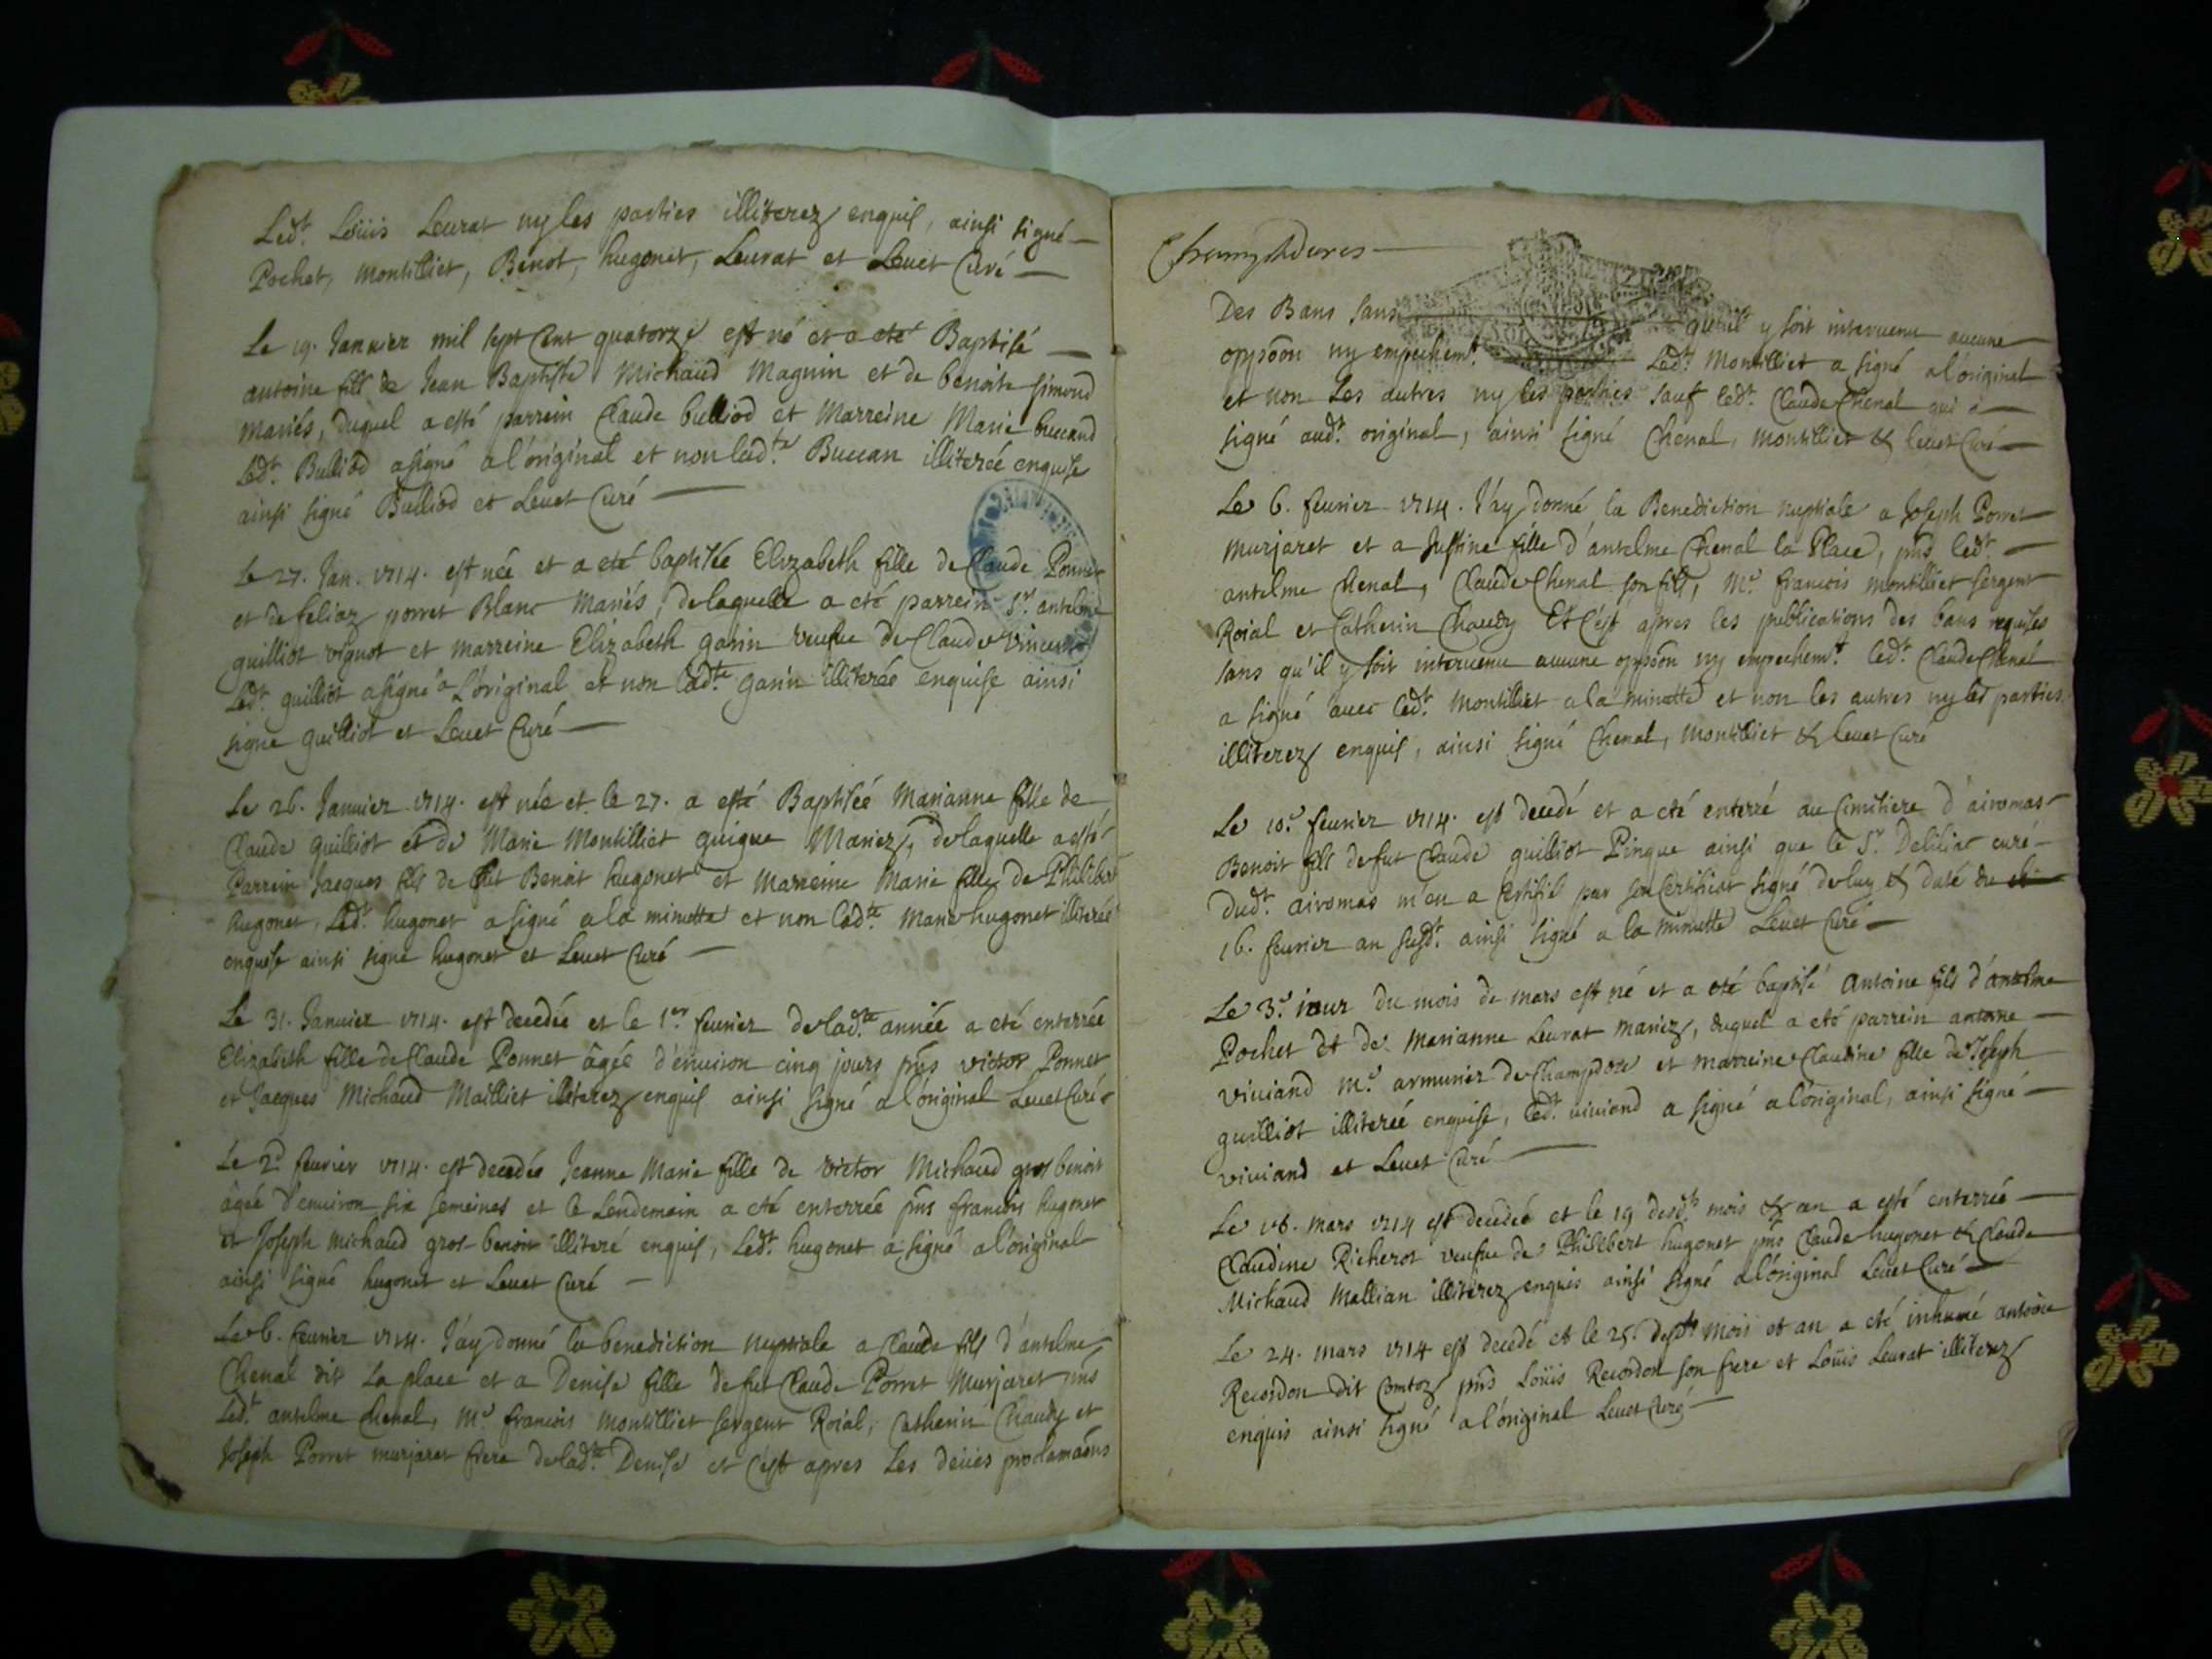 Led.t Loüis Leurat ny les parties illiterez enquis, ainsi signé
Pochet, montilliet, Benot, hugonet, Leurat et Leuet Curé
Le 19. Januier mil sept Cent quatorze est né et a eté Baptisé
antoine fils de Jean Baptiste Michaud Maguin et de benoite simond
mariés, duquel a esté parrein Claude bulliod et Marreine Marie buccand
Led.t Bulliod a signé a l'original et non lad.te Buccan illiterée enquise
ainsi signé Bulliod et Leuet Curé
Le 27. Jan. 1714. est née et a eté baptisée Elizabeth fille de Claude Ponnet
et de feliaz porret Blanc Mariés, de laquelle a eté parrein S.r antelme
guilliot vignot et marreine Elizabeth garin veufue de Claude Vincent
Led.t guilliot a signé a L'original et non lad.te garin illiterée enquise ainsi
signe guilliot et Leuet Curé
Le 26. Januier 1714. est née et le 27. a esté Baptisée Marianne fille de
Claude guilliot et de Marie Montilliet guigue Mariez, de laquelle a esté
Parrein Jacques fils de fut Benoit hugonet et Marreine Marie fille de Philibert
hugonet, Led.t hugonet a signé a la minutte et non lad.te Marie hugonet illiterée
enquise ainsi signé hugonet et Leuet Curé
Le 31. Januier 1714. est decedée et le 1.er feurier de lad.te année a eté enterrée
Elizabeth fille de Claude Ponnet âgée d'enuiron cinq jours pns victor Ponnet
et Jacques Michaud Mailliet illiterez enquis ainsi signé a l'original Leuet Curé
Le 2.d feurier 1714. est decedée Jeanne Marie fille de victor Michaud gros benoit
âgée d'enuiron six semeines et le Lendemain a eté enterrée pns francois hugonet
et Joseph michaud gros-benoit illiteré enquis, Led.t hugonet a signé a l'original
ainsi signé hugonet et Leuet Curé
Le 6. feurier 1714. J'ay donné la benediction nuptiale a Claude fils d'antelme
Chenal dit La place et a Denise fille de fut Claude Porret Murjaret pns
Led.t antelme Chenal, M.e francois montilliet sergent Roial, Catherin Chaudy et
Joseph Porret murjaret frere de lad.te Denise et c'est apres Les deües proclamaôns
Champdores
Des Bans sans qu'il y soit interuenu aucune
opposôon ny empechem.t Led.t Montilliet a signé a l'original
et non Les autres ny les parties sauf led.t Claude Chenal qui a
signé aud.t original, ainsi signé Chenal, montilliet & leuet Curé
Le 6. feurier 1714. J'ay donné la Benediction nuptiale a Joseph Porret
murjaret et a Justine fille d'antelme Chenal la Place, pns led.t
antelme Chenal, Claude Chenal son fils, M.e francois montilliet sergent
Roial et Catherin Chaudy Et c'est apres les publications des bans requises
sans qu'il y soit interuenu aucune opposôon ny empechem.t led.t Claude Chenal
a signé auec led.t Montilliet a la minutte et non les autres ny les parties
illiterez enquis, ainsi signé Chenal, montilliet & leuet Curé
Le 10.e feurier 1714. est decedé et a eté enterré au Cimitiere d'airomas
Benoit fils de fut Claude guilliot Pingue ainsi que le S.r Deliliac curé
dud.t airomas m'en a certifié par son Certificat signé de luy & daté du
16. feurier an susd.t ainsi signé a la minutte Leuet Curé
Le 3.e jour du mois de mars est né et a eté baptisé Antoine fils d'antelme
Pochet et de Marianne Leurat mariez, duquel a eté parrein antoine
viuiand M.e armurier de Champdore et marreine Claudine fille de Joseph
guilliot illiterée enquise, led.t viuiand a signé a l'original, ainsi signé
viuiand et Leuet Curé
Le 18. mars 1714 est decedée et le 19 desd.ts mois & an a esté enterrée
Claudine Richerot veufue de Philibert hugonet pns Claude hugonet & Claude
Michaud Mallian illiterez enquis ainsi signé a l'original Leuet Curé
Le 24. mars 1714 est decedé et le 25. desd.ts mois et an a eté inhumé antoine
Recordon dit Comtoz pns Loüis Recordon son frere et Loüis Leurat illiterez
enquis ainsi signé a l'original Leuet Curé